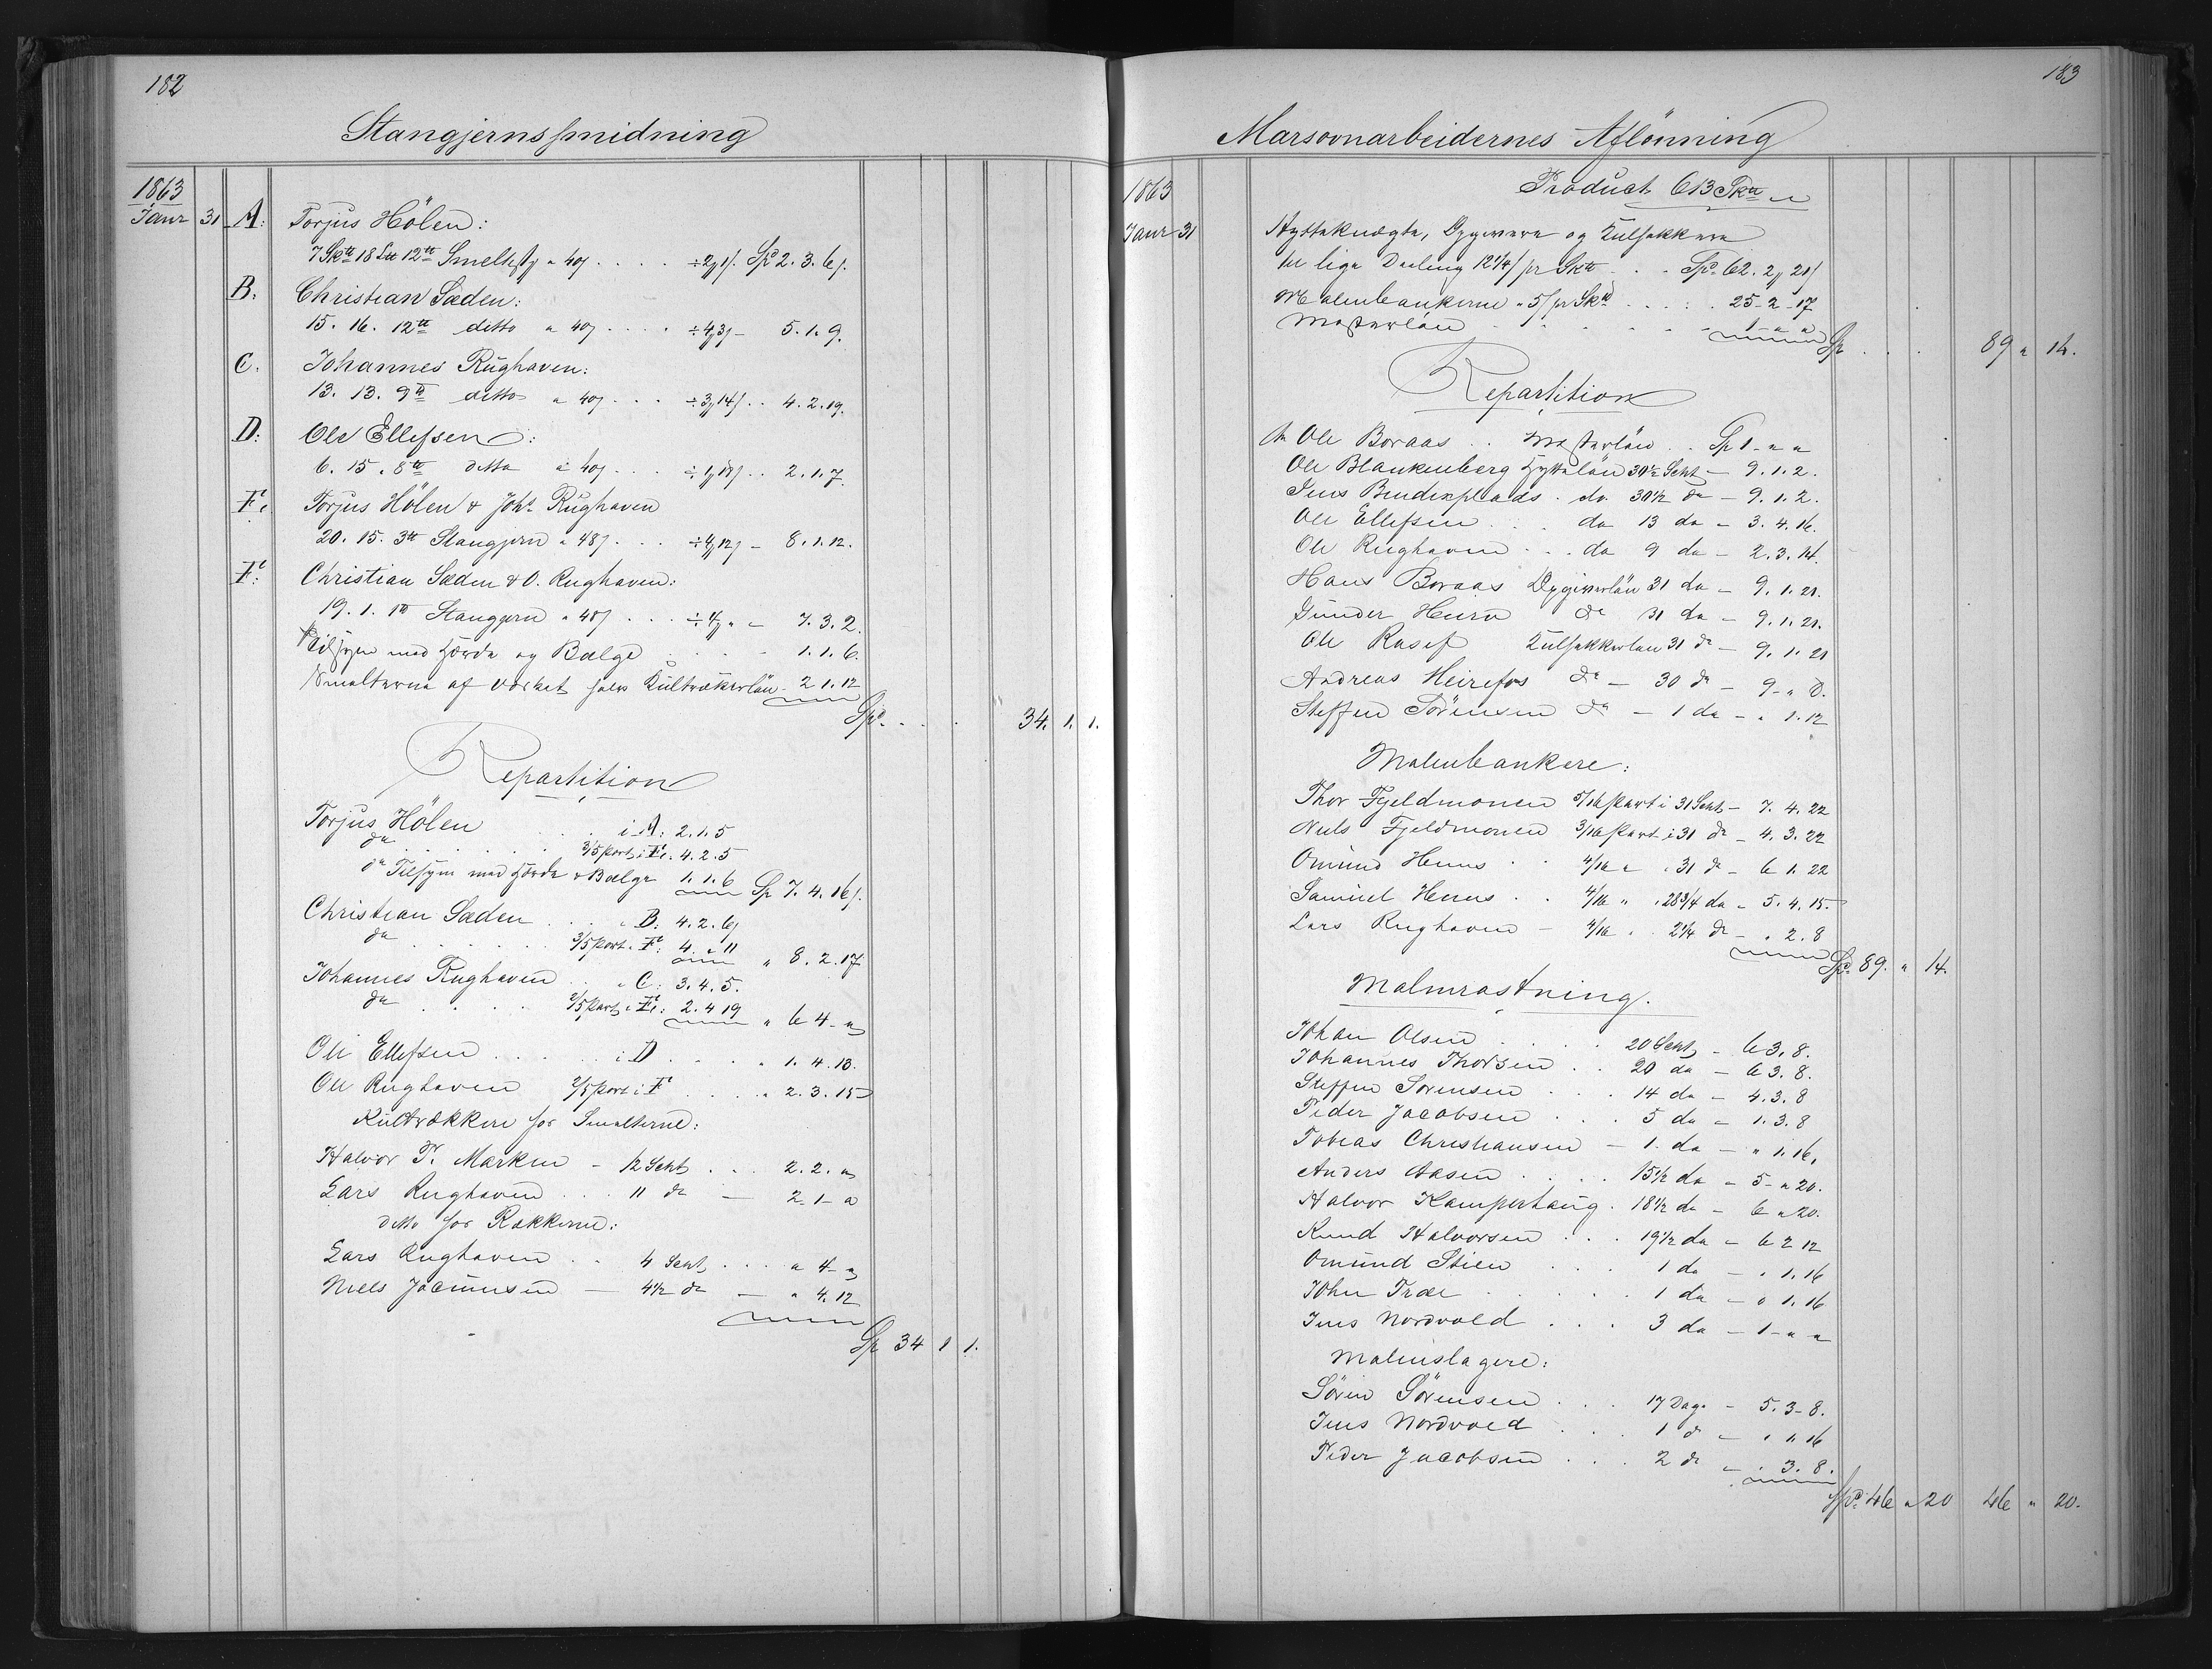 182
Stangjernssmidning
1863
Janr 31 A: Torjus Hölen:
7 Sk℔ 18 L℔ 12℔ Smeltstg a 40ſ ÷2ʒ1ſ. Spd 2. 3. 6ſ.
B. Christian Sæden:
15. 16. 12℔ ditto a 40ſ ÷4ʒ3ſ - 5. 1. 9.
C. Johannes Rughaven:
13. 13. 9℔ ditto a 40ſ ÷3ʒ14ſ . . 4. 2. 19.
D: Ole Ellefsen:
6. 15. 8℔ ditto a 40ſ ÷1ʒ18ſ . . 2. 1. 7.
Torjus Hölen & Johs Rughaven
20. 15. 3℔ Stangjern a 48ſ ÷4ʒ12ſ - 8. 1. 12.
Christian Sæden & O. Rughaven:
19. 1. 1℔ Stangjern a 48ſ ÷4ʒ " - 7. 3. 2.
Tilsyn med Hærde og Bælge 1. 1. 6.
Smelterne af Værket halv Kultrækkerlön - 2 1. 12
Spd. 34. 1. 1.
Repartition
Torjus Hölen i A: 2. 1. 5
do 3/5 part i 4. 2. 5
do Tilsyn med Hærde & Bælge 1. 1. 6 Sp 7. 4. 16ſ.
Christian Sæden " B: 4. 2. 6ſ
do 3/5 part. 4. " 11 " 8. 2. 17
Johannes Rughaven " C: 3. 4. 5.
do 2/5 part " 2. 4 19 " 6 4 - "
Ole Ellefsen i D " 1. 4. 13.
Ole Rughaven 2/5 part i " 2. 3. 15
Kultrækkere for Smelterne:
Halvor T. Marken - 12 Scht 2. 2. "
Lars Rughaven 11 do - 2 1 - "
ditto for Rækkerne:
Lars Rughaven 4 Scht " 4 - "
Niels Jacimsen - 4 1/2 do - " 4. 12
Sp 34 1 1.
183
Marsovnarbeidernes Aflönning
Product 613 Sk℔
1863
Janr 31 Hyttekneygte, Opgivere og Kulsækkere
til lige Deeling 12 1/4ſ pr Sk℔ Spd. 62. 2ʒ 21ſ
Malmbankerne a 5ſ pr Sk℔ 25 - 2 - 17
Mesterlön 1 - " "
Sp 89 " 14.
Repartition
Ole Boraas Mesterlön Sp 1 - " "
Ole Blankenberg Hyttelön 30 1/2 Scht - 9. 1. 2.
Jens Bendixplads do 30 1/2 do - 9. 1. 2.
Ole Ellefsen do 13 do - 3. 4. 16.
Ole Rughaven do 9 do - 2. 3. 14.
Hans Boraas Opgiverlön 31 do - 9. 1. 21.
Gunder Henn do 31 do - 9. 1. 21.
Ole Kulsækkerlön 31 do - 9. 1. 21
Andreas do - 30 do - 9 - " 8.
Steffen Sörensen do - 1 do - " 1. 12
Malmbankere:
Thor Fjeldmonen 5/16 part i 31 Scht - 7. 4. 22
Niels Fjeldmonen 3/16 part i 31 do - 4. 3. 22
Omund Henns 4/16 " " 31 do - 6 1. 22
Samuel Henns 4/16 " " 28 3/4 do - 5. 4. 15.
Lars Rughaven - 4/16 " 2 1/4 do - " 2. 8
Spd. 89. " 14.
Malmrostning.
Johan Olsen 20 Scht - 6 3. 8.
Johannes Thorsen 20 do - 6 3. 8.
Steffen Sörensen 14 do - 4. 3. 8
Peder Jacobsen 5 do - 1. 3. 8
Tobias Christiansen - 1. do - " 1. 16.
Anders Aasen 15 1/2 do - 5 - " 20.
Halvor Kamperhaug 18 1/2 do - 6 " 20.
Knud Halvorsen 19 1/2 do - 6 2 12
Omund Stien 1 do - " 1. 16
John Træe 1 do - " 1. 16
Jens Nordvold 3 do - 1 - " "
Malmslagere:
Sören Sörensen 17 Dage - 5. 3 - 8.
Jens Nordvold 1 do - " 1. 16
Peder Jacobsen 2 do - " 3. 8.
Spd. 46 " 20 46 " 20.